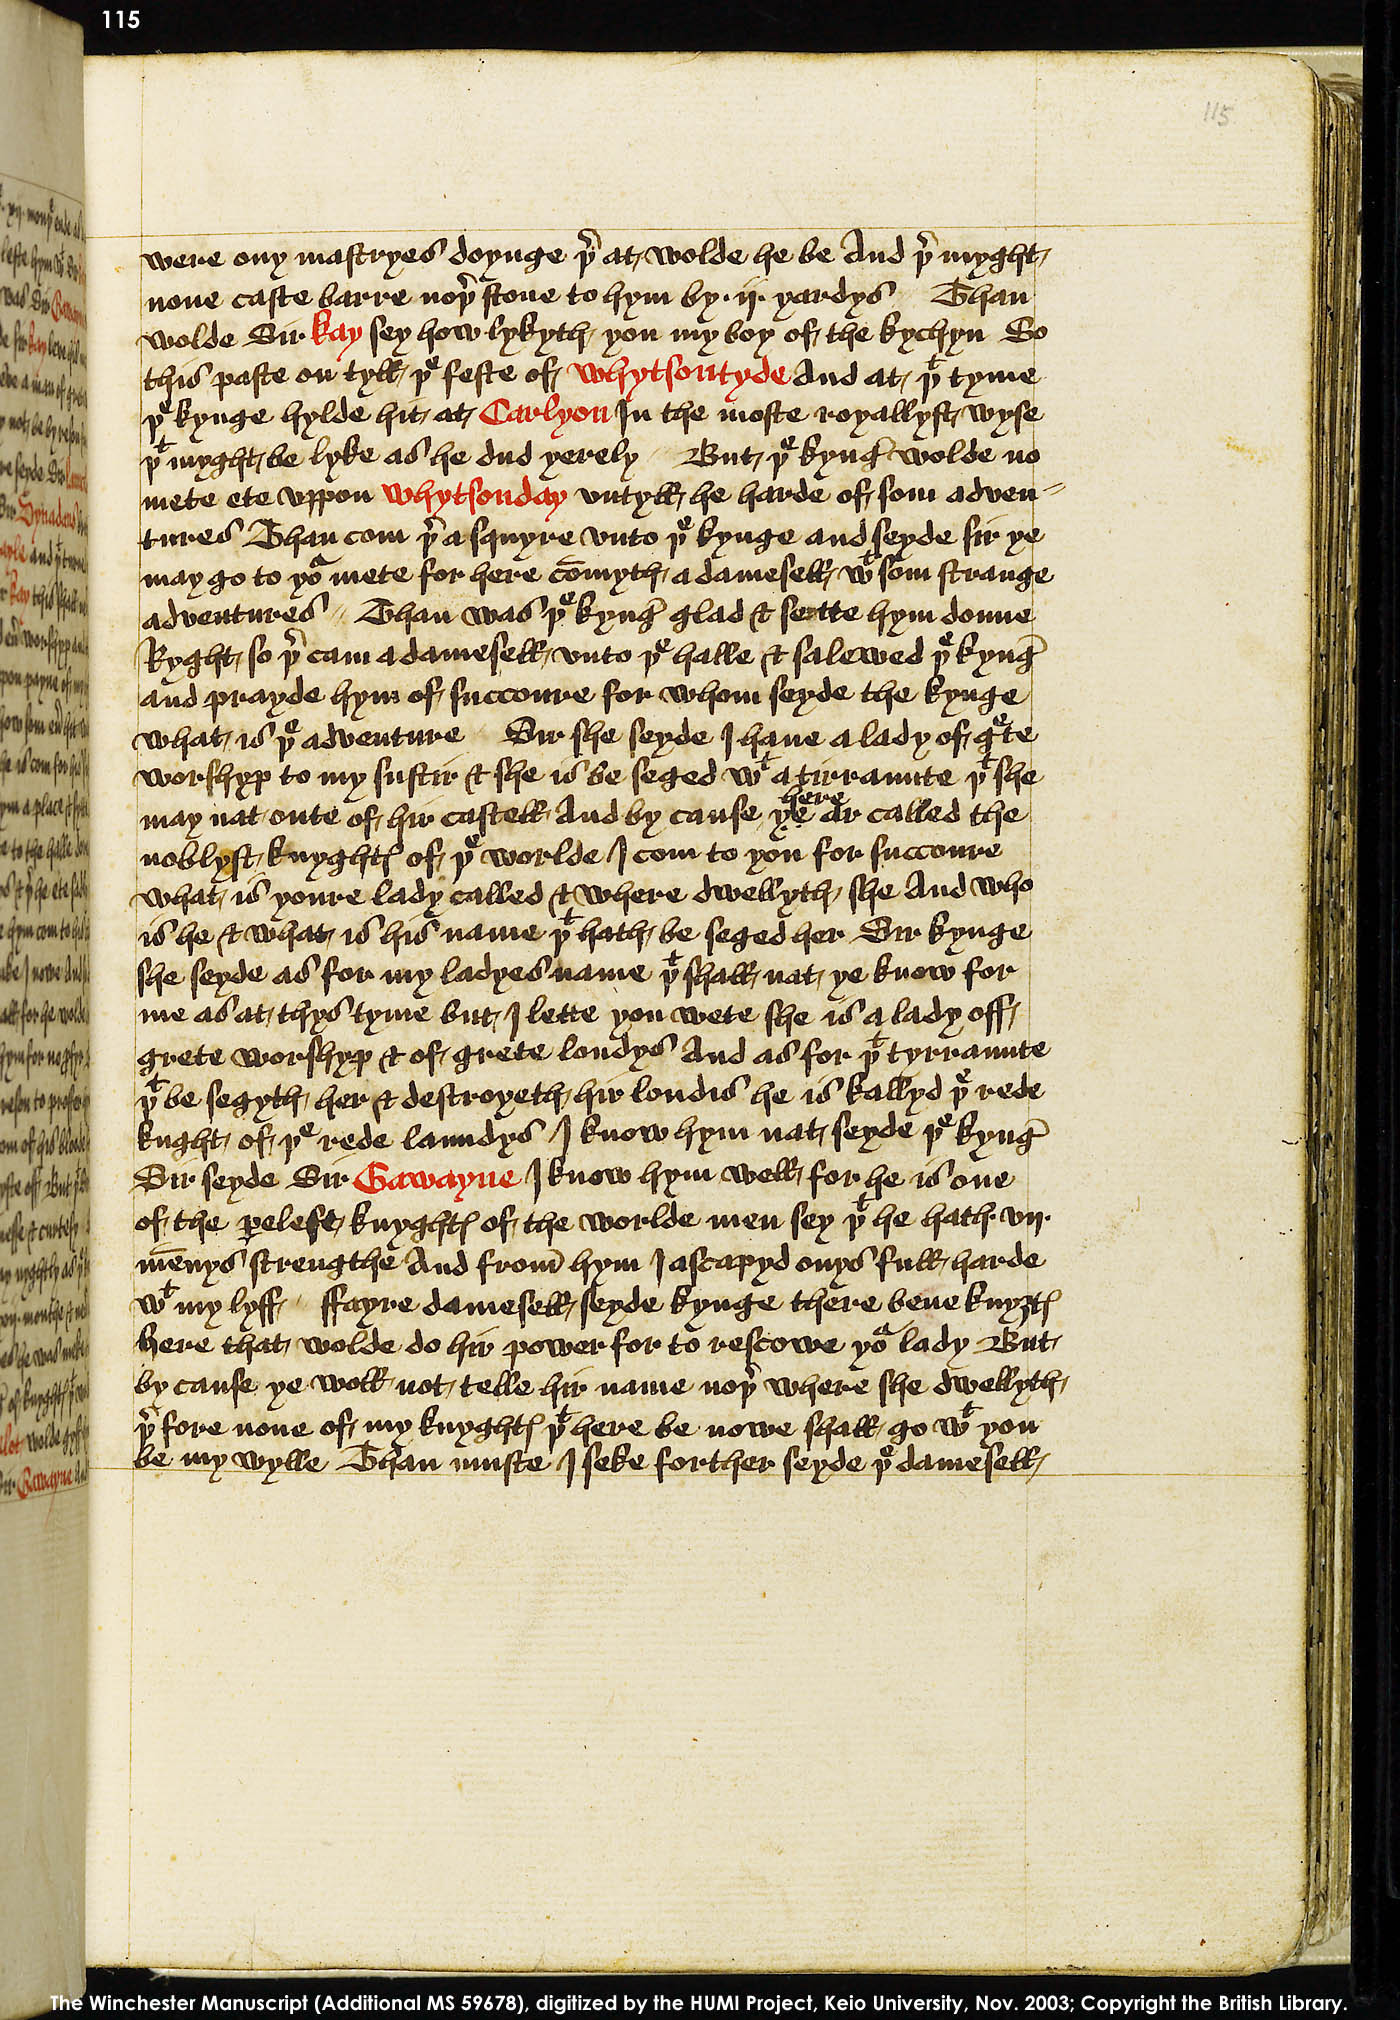 115
115
were ony mastryes doynge þr at wolde he be And þr myght
none caste barre noþr stone to hym by ·ij· yardys Than
wolde Sir kay sey how lykyth you my boy of the kychyn So
this paste on tyll þe feste of Whytsontyde And at þt tyme
þe kynge hylde hit at Carlyon In the moste royallyst wyse
þt myght be lyke as he dud yerely But þe kynge wolde no
mete ete vppon Whytsonday vntyll he harde of som adven⸗
tures Than com þr a squyre vnto þe kynge and seyde sir ye
may go to yor mete for here comyth a damesell wt som strange
adventures Than was þe kynge glad & sette hym doune
Ryght so þr cam a damesell vnto þe halle & salewed þe kynge
and prayde hym of succoure for whom seyde the kynge
what is þe adventure Sir she seyde I haue a lady of grete
worshyp to my sustir & she is be seged wt a tirraunte þt she
may nat oute of hir castell And by cause here ye ar called the
noblyst knyghtes of þe worlde I com to you for succoure
what is youre lady called & where dwellyth she And who
is he & what is his name þt hath be seged her Sir kynge
she seyde as for my ladyes name þt shall nat ye know for
me as at thys tyme but I lette you wete she is a lady off
grete worshyp & of grete londys And as for þt tyrraunte
þt be segyth her & destroyeth hir londis he is kallyd þe rede
knght of þe rede laundys I know hym nat seyde þe kynge
Sir seyde Sir Gawayne I know hym well for he is one
of the pereleſt knyghtes of the worlde men sey þt he hath vij·
mennys strengthe And from hym I ascapyd onys full harde
wt my lyff ffayre damesell seyde kynge there bene knyȝtes
here that wolde do hir power for to rescowe yor lady But
by cause ye woll not telle hir name noþr where she dwellyth
þr fore none of my knyghtes þt here be nowe shall go wt you
be my wylle Than muste I seke forther seyde þe damesell
The Winchester Manuscript (Additional MS 59678), digitized by the HUMI Project, Keio University, Nov. 2003; Copyright the British Library.